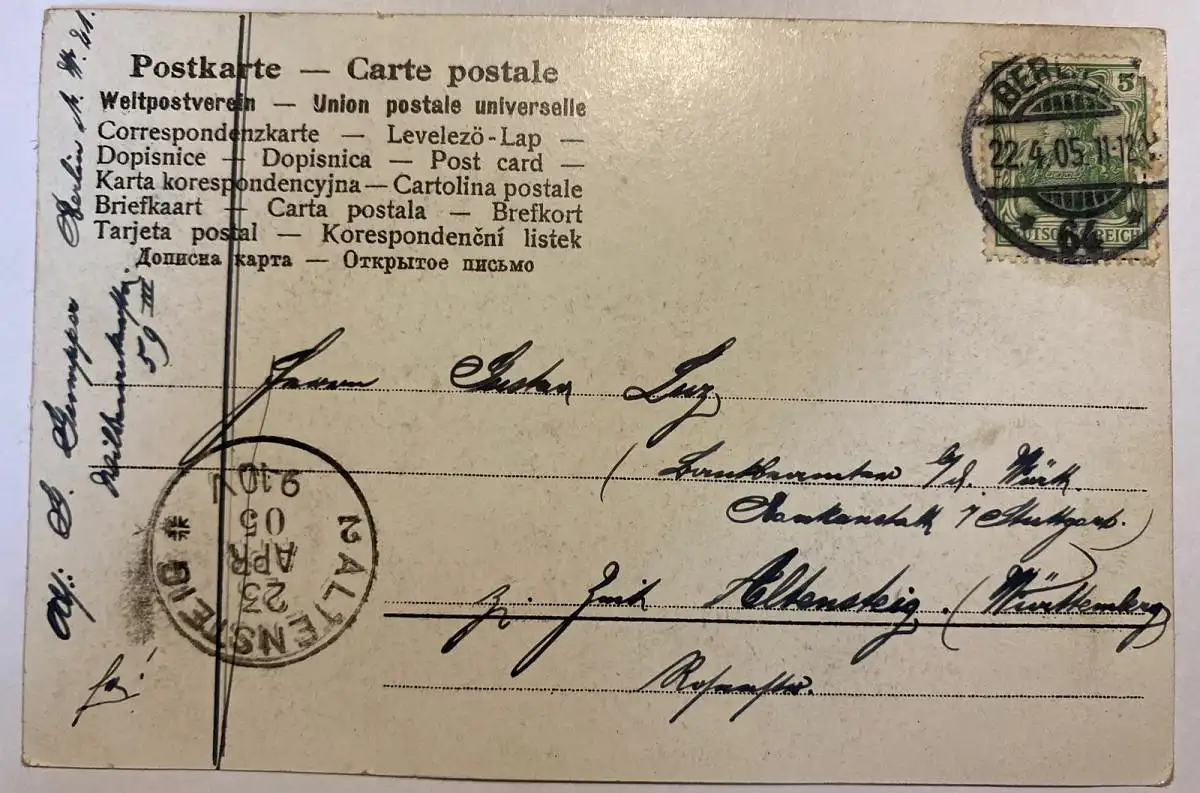 Postkarte — Carte postale
Weltpostverein — Union postale universelle
Correspondenzkarte — Levelező-Lap —
Dopisnice — Dopisnica — Post card —
Karta korespondencyjna — Cartolina postale
Briefkaart — Carta postala — Brefkort
Tarjeta postal — Korespondenční listek
Дописна карта — Открытое письмо
BERLIN
22.4.05. 11-12
64
5
DEUTSCHES REICH
Herrn Gustav Luz
(Bankbeamter a/d. Württ.
Bankanstalt / Stuttgart.)
zur Zeit Altensteig. (Württemberg)
Rosenstr.
ALTENSTEIG
23
APR
05
9-10 V
2
Berlin N. W. 21.
Wilsnackerstr.
59 III